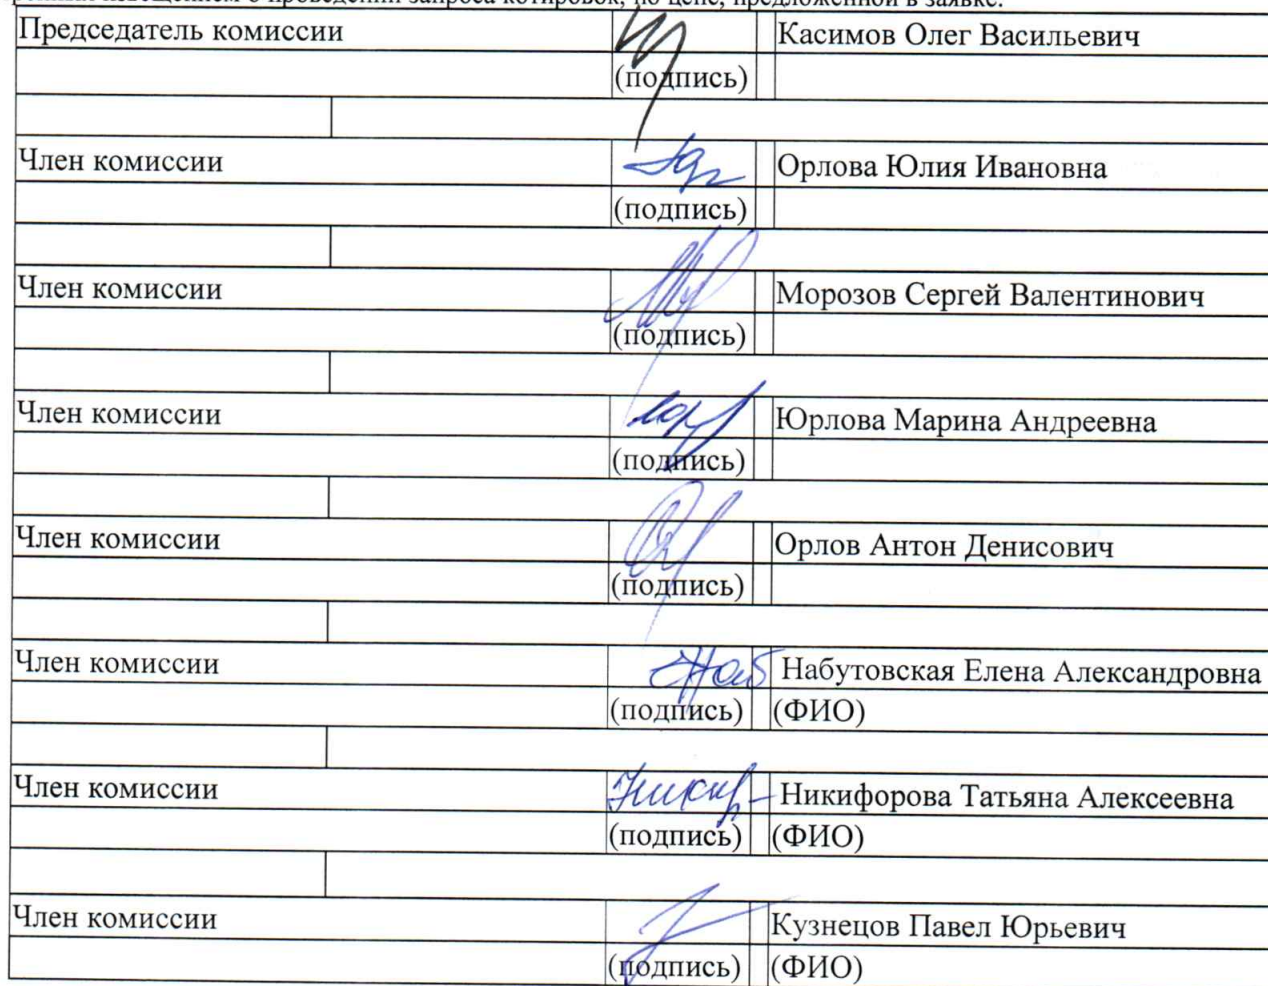 извещением о проведении запроса котировок, по цене, предложенной в заявке.
Председатель комиссии Касимов Олег Васильевич
(подпись)
Член комиссии Орлова Юлия Ивановна
(подпись)
Член комиссии Морозов Сергей Валентинович
(подпись)
Член комиссии Юрлова Марина Андреевна
(подпись)
Член комиссии Орлов Антон Денисович
(подпись)
Член комиссии Набутовская Елена Александровна
(подпись) (ФИО)
Член комиссии Никифорова Татьяна Алексеевна
(подпись) (ФИО)
Член комиссии Кузнецов Павел Юрьевич
(подпись) (ФИО)